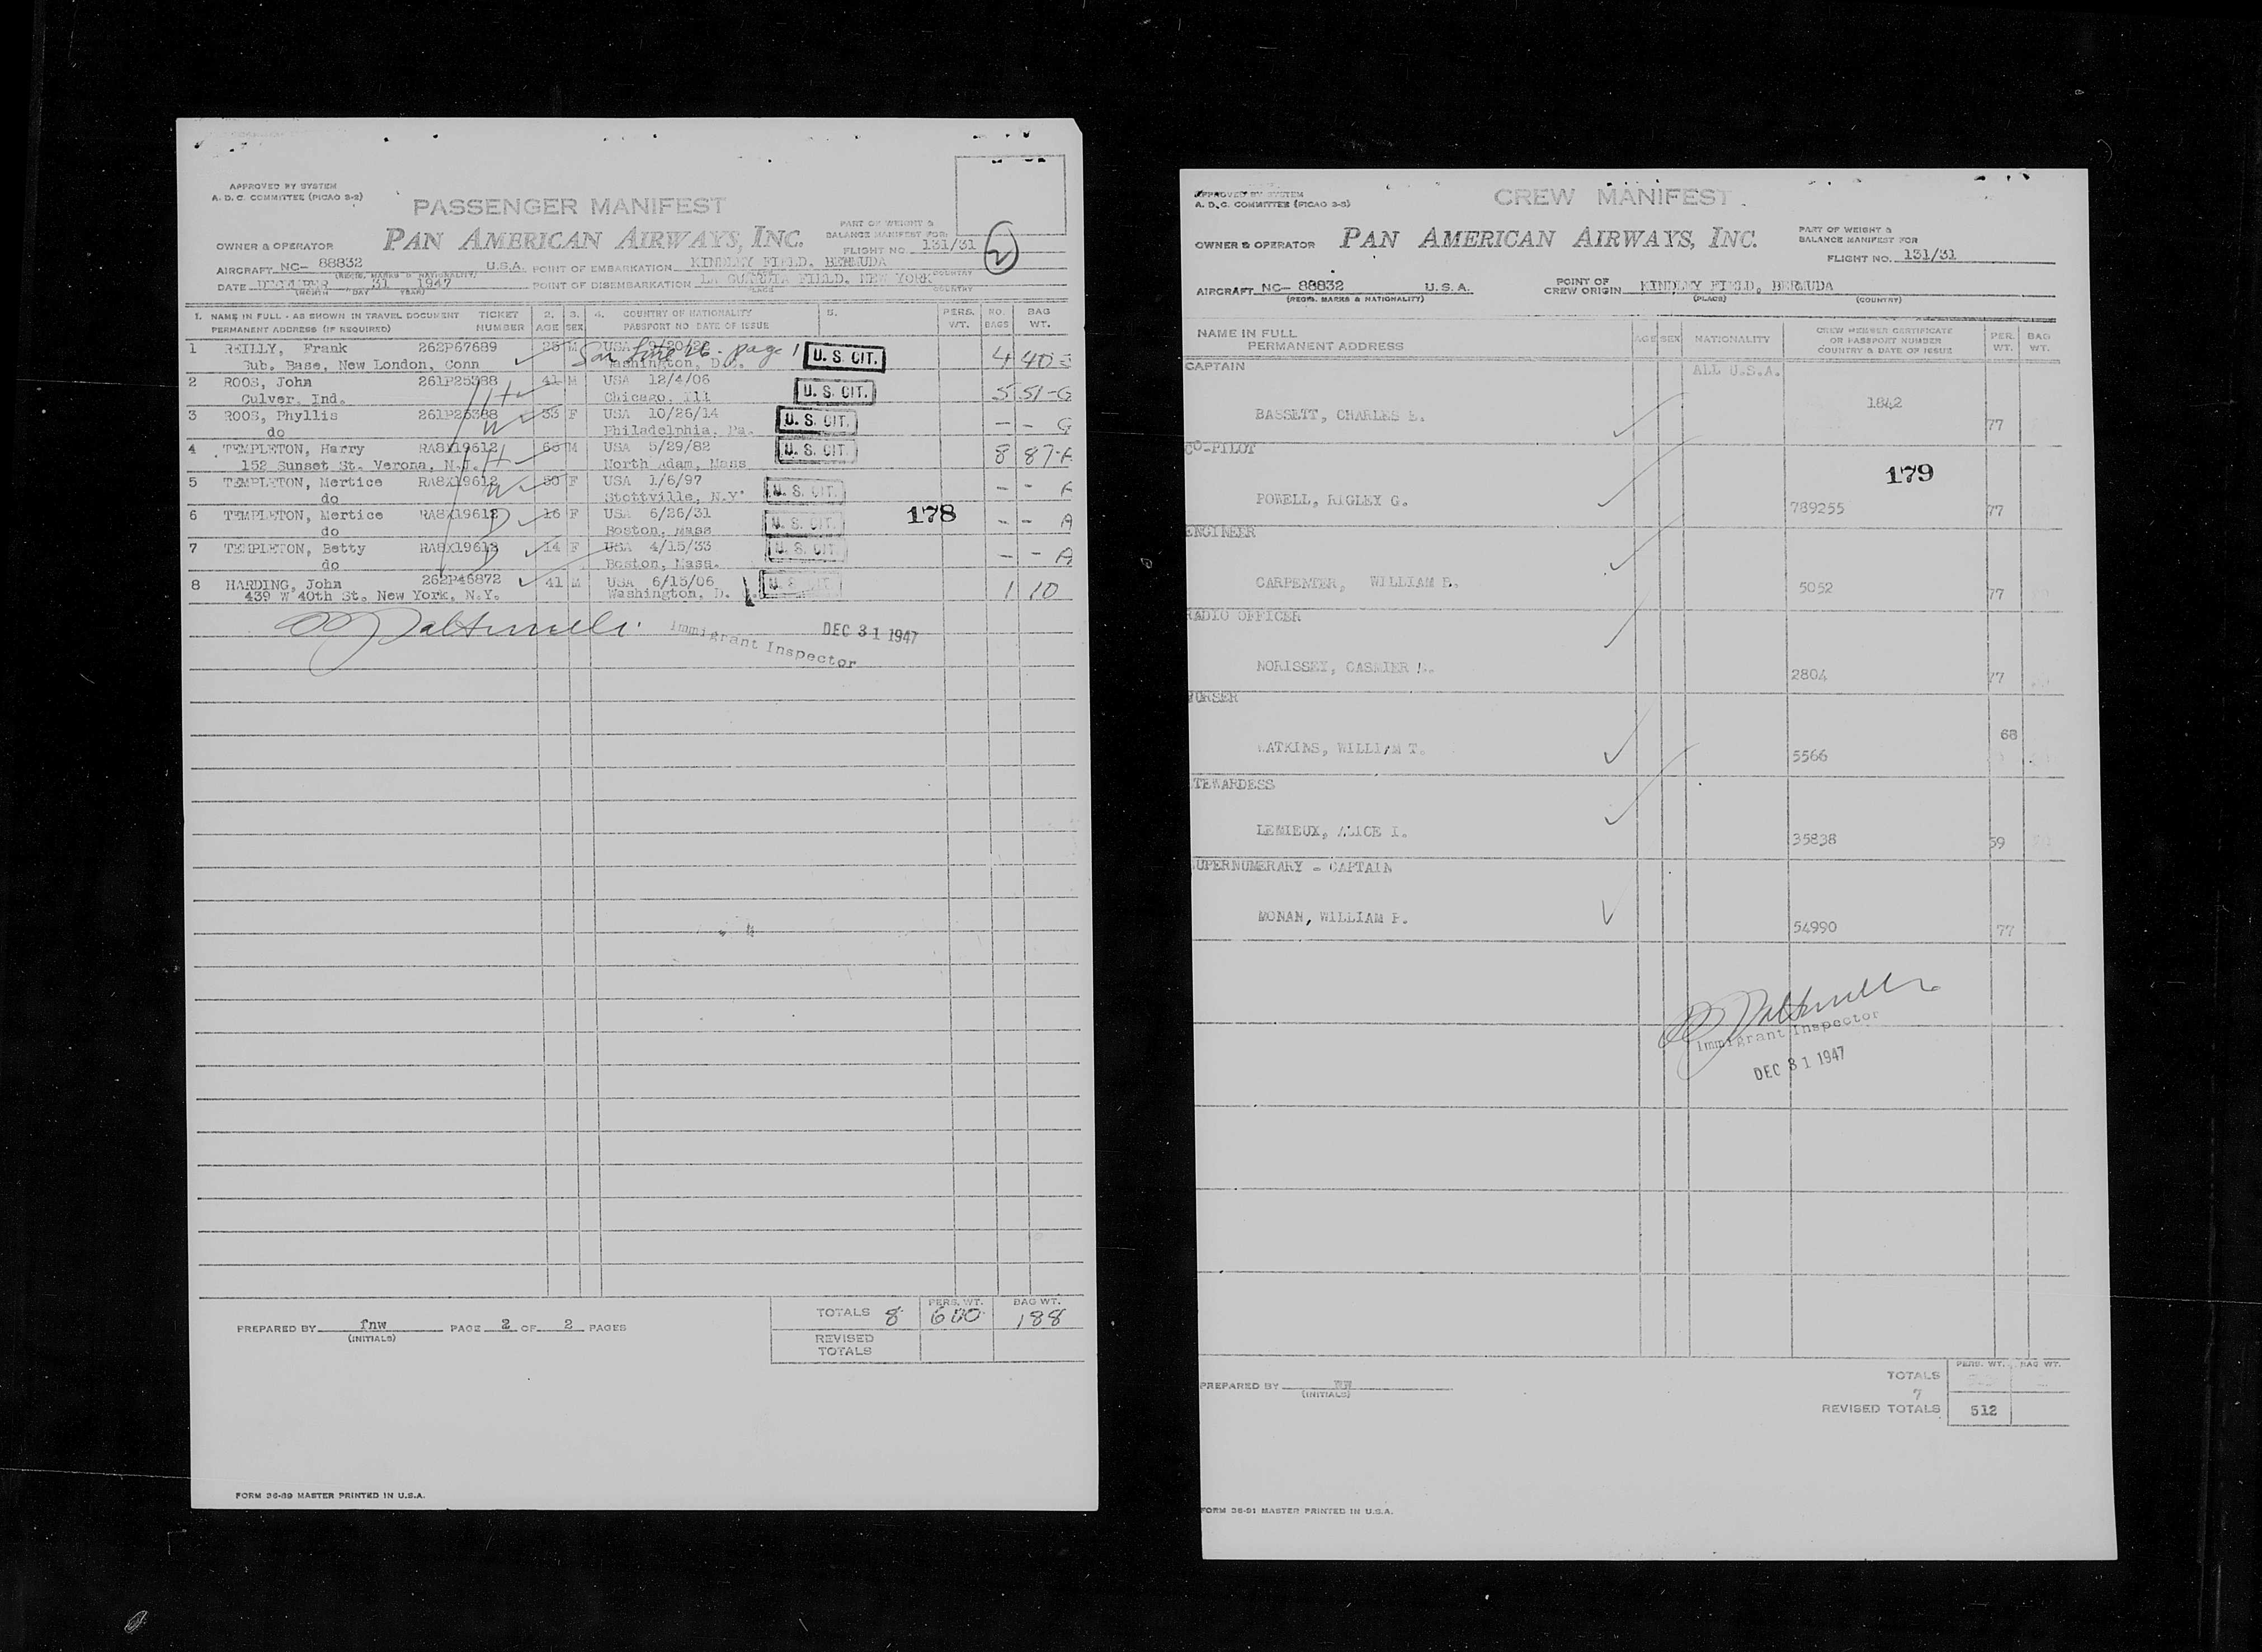 APPROVED BY SYSTEM
A. D. C. COMMITTEE (PICAO 3-2)
PASSENGER MANIFEST
PART OF WEIGHT &
BALANCE MANIFEST FOR
OWNER & OPERATOR PAN AMERICAN AIRWAYS, INC.
FLIGHT NO. 131/31
2
AIRCRAFT NC- 88832 U.S.A. POINT OF EMBARKATION KINDLEY FIELD, BERMUDA
(REGIS. MARKS & NATIONALITY) COUNTRY
DATE DECEMBER 31 1947 POINT OF DISEMBARKATION LA GUARDIA FIELD, NEW YORK
(MONTH DAY YEAR) PLACE COUNTRY
1. NAME IN FULL - AS SHOWN IN TRAVEL DOCUMENT TICKET 2. 3. 4. COUNTRY OF NATIONALITY 5. PERS. NO. BAG
PERMANENT ADDRESS (IF REQUIRED) NUMBER AGE SEX PASSPORT NO DATE OF ISSUE WT. BAGS WT.
1 REILLY, Frank 262P67689 M USA page 1 U. S. CIT. 4 40
Sub. Base, New London, Conn Washington, D.C.
2 ROOS, John 261P25388 41 M USA 12/4/06 U. S. CIT. 5 51-G
Culver, Ind. H Chicago, Ill
3 ROOS, Phyllis 261P25388 33 F USA 10/26/14 U. S. CIT. - - G
do W Philadelphia, Pa.
4 TEMPLETON, Harry RA8X19612 H 65 M USA 5/29/82 U. S. CIT. 8 87-A
152 Sunset St. Verona, N.J. North Adam, Mass
5 TEMPLETON, Mertice RA8X19612 W 50 F USA 1/6/97 U. S. CIT. - - A
do Stottville, N.Y.
6 TEMPLETON, Mertice RA8X19612 D 16 F USA 6/26/31 U. S. CIT. 178 - - A
do Boston, Mass
7 TEMPLETON, Betty RA8X19612 D 14 F USA 4/15/33 U. S. CIT. - - A
do Boston, Mass.
8 HARDING, John 262P46872 41 M USA 6/15/06 U. S. CIT. 1 10
439 W 40th St. New York, N.Y. Washington, D.
Immigrant Inspector DEC 31 1947
TOTALS 8 PERS. WT. 600 BAG WT. 188
PREPARED BY fnw PAGE 2 OF 2 PAGES
(INITIALS)
REVISED
TOTALS
FORM 36-89 MASTER PRINTED IN U.S.A.
APPROVED BY SYSTEM
A. D. C. COMMITTEE (PICAO 3-3)
CREW MANIFEST
OWNER & OPERATOR PAN AMERICAN AIRWAYS, INC.
PART OF WEIGHT &
BALANCE MANIFEST FOR
FLIGHT NO. 131/31
AIRCRAFT NC- 88832 U.S.A. POINT OF CREW ORIGIN KINDLEY FIELD, BERMUDA
(REGIS. MARKS & NATIONALITY) (PLACE) (COUNTRY)
NAME IN FULL
PERMANENT ADDRESS AGE SEX NATIONALITY CREW MEMBER CERTIFICATE OR PASSPORT NUMBER COUNTRY & DATE OF ISSUE PER. WT. BAG WT.
CAPTAIN ALL U.S.A.
BASSETT, CHARLES E. 1842 77
CO-PILOT
179
POWELL, RIGLEY G. 789255 77
ENGINEER
CARPENTER, WILLIAM R. 5052 77
RADIO OFFICER
NORISSEY, CASMIER 2804 77
PURSER
WATKINS, WILLIAM T. 5566 68
STEWARDESS
LEMIEUX, ALICE I. 35838 59
SUPERNUMERARY - CAPTAIN
MONAN, WILLIAM P. 54990 77
Immigrant Inspector
DEC 31 1947
PERS. WT. BAG WT.
TOTALS
7
PREPARED BY
(INITIALS)
REVISED TOTALS 512
FORM 36-91 MASTER PRINTED IN U.S.A.